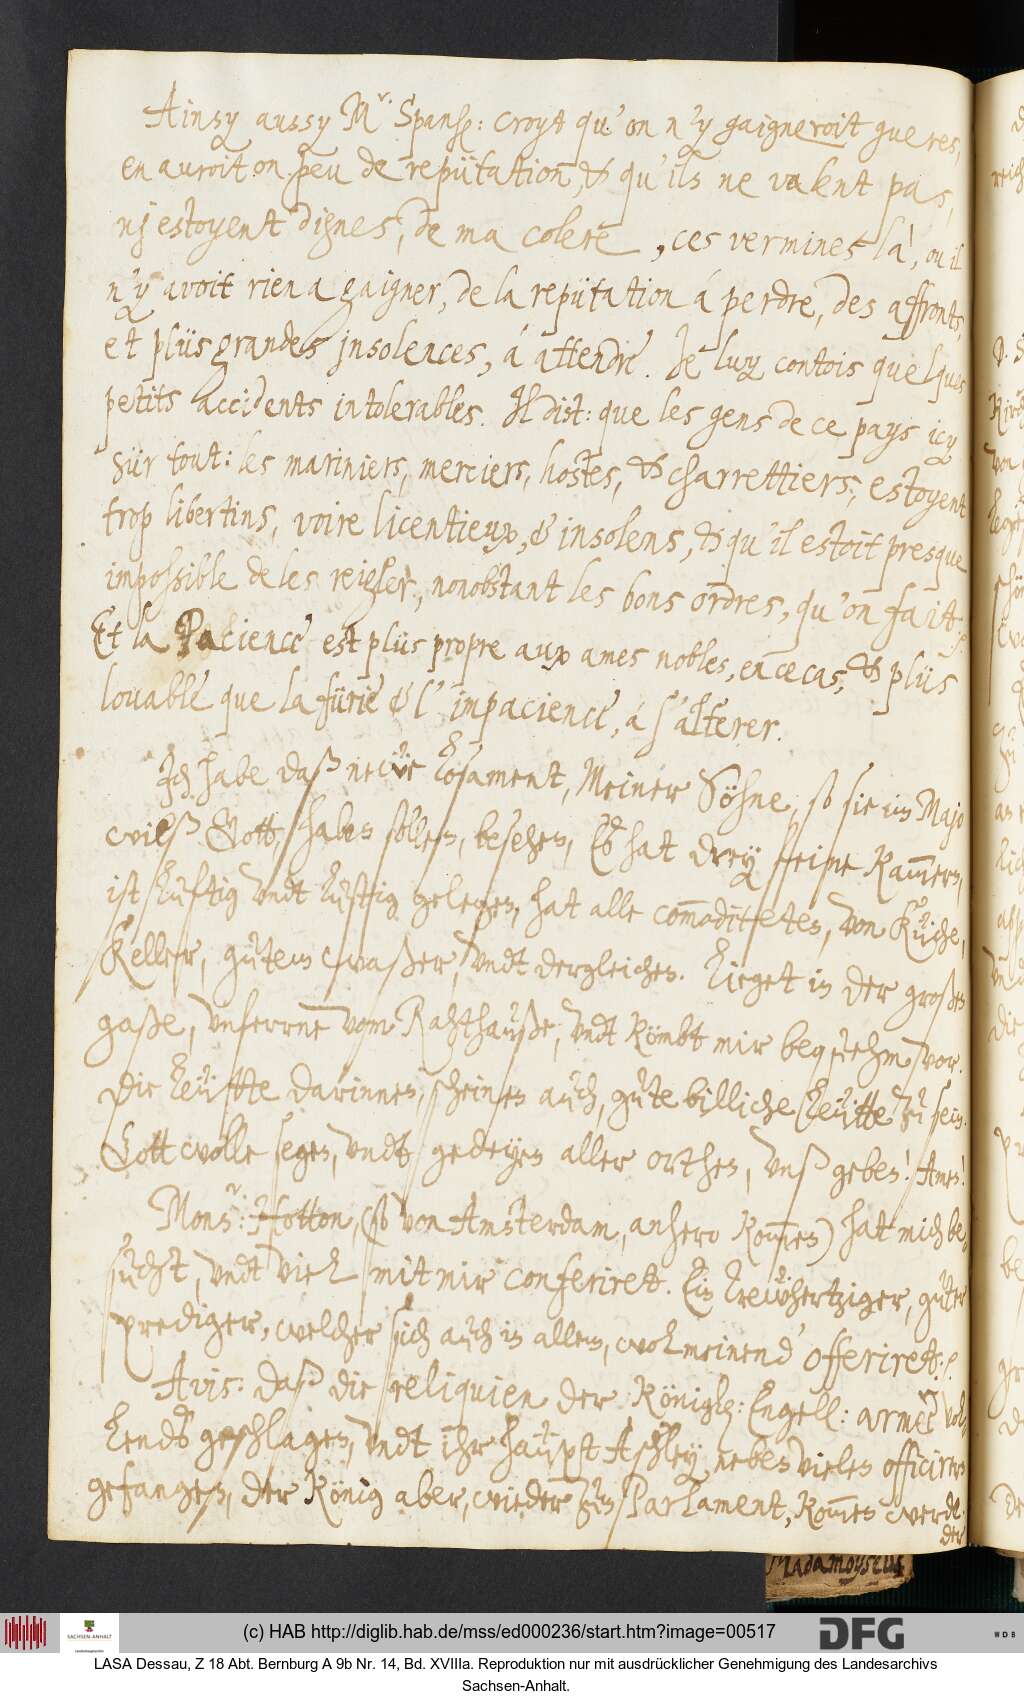 Ainsy aussy Mr. Spanh: croyt qu'on n'y gaigneroit gueres,
en auroit on peu de repütation, & qu'ils ne valent pas,
nj estoyent dignes, de ma colere, ces vermines là, ou il
n'y avoit rien a gaigner, de la repütation á perdre, des affronts,
et plüs grandes jnsolences, á attendre. Je luy contois quelques
petits accidents intolerables. Il dist: que les gens de ce pays icy
sür tout: les mariniers, merciers, hostes, & charrettiers, estoyent
trop libertins, voire licentieux, & insolens, & qu'il estoit presque
impossible de les reigler, nonobstant les bons ordres, qu'on fait.
Et la Pacience est plüs propre aux ames nobles, en ce cas, & plüs
louable que la fürie & l'impacience, á s'alterer.
Jch habe daß neẅe losament, Meiner Söhne, so sie im Majo
wilß Gott, haben sollen, besehen, Es hat drey feine Kam̅ern,
ist luftig undt lustig gelegen, hat alle com̅oditeten, von Küche,
Keller, gutem waßer, undt dergleichen. Lieget in der großen
gaße, unferrne vom Rahthause, undt kömbt mir beq̃uehm vor.
Die leütte darinnen, scheinen auch, gute billiche leütte zu sein.
Gott wolle segen, undt gedeyen aller orthen, unß geben! Amen!
Monsr: Hotton, (so von Amsterdam, anhero kom̅en) hat mich be-
sucht, undt viel mit mir conferiret. Ein trewhertziger, guter
prediger, welcher sich auch in allem, wol meinend offeriret.
Avis: daß die reliquien der Königl: Engell: armèe vol-
lends geschlagen, undt ihr haüpt Ashley neben vielen officirern
gefangen, der König aber, wieder zum Parlament, kom̅en werde.
der
Madamoyselle
(c) HAB http://diglib.hab.de/mss/ed000236/start.htm?image=00517
SACHSEN-ANHALT
DFG
WDB
LASA Dessau, Z 18 Abt. Bernburg A 9b Nr. 14, Bd. XVIIIa. Reproduktion nur mit ausdrücklicher Genehmigung des Landesarchivs
Sachsen-Anhalt.